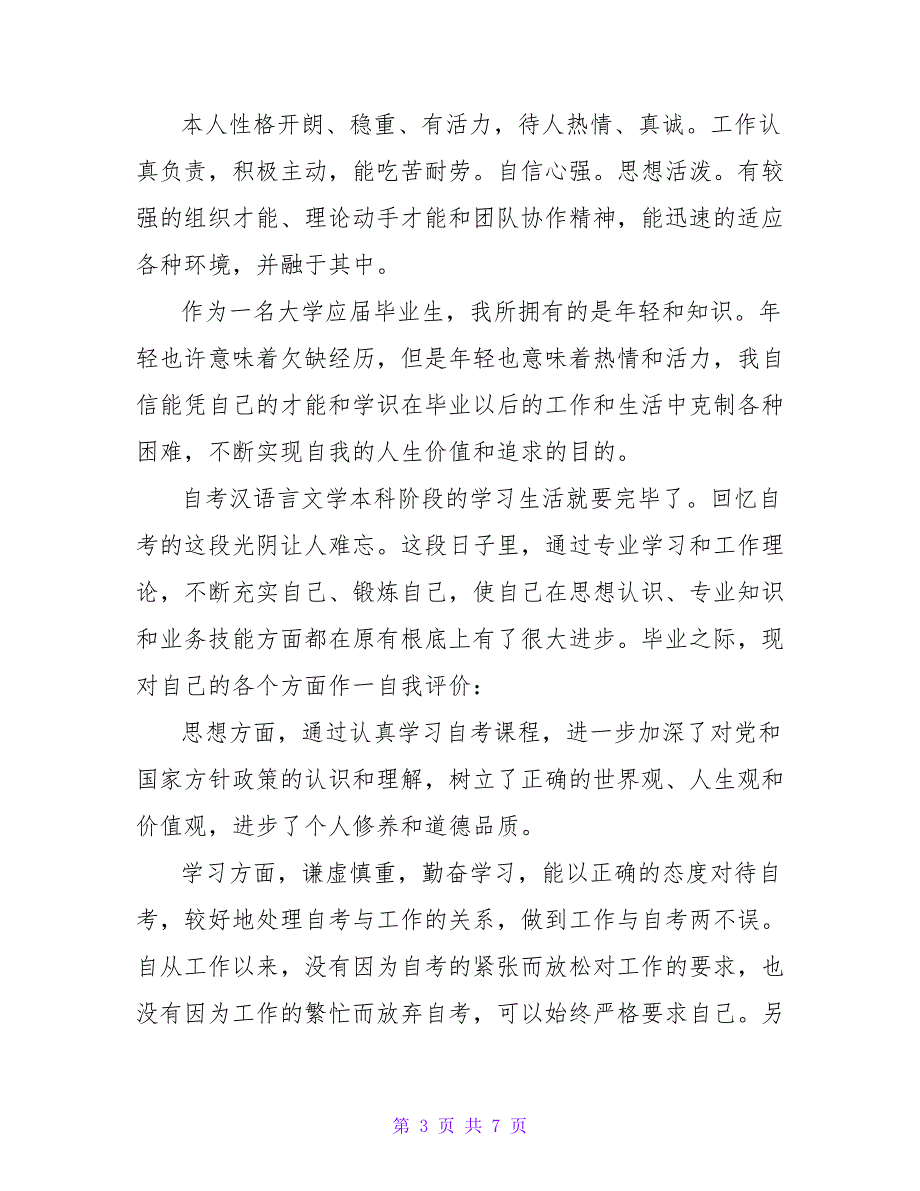 本人性格开朗、稳重、有活力，待人热情、真诚。工作认
真负责，积极主动，能吃苦耐劳。自信心强。思想活泼。有较
强的组织才能、理论动手才能和团队协作精神，能迅速的适应
各种环境，并融于其中。
作为一名大学应届毕业生，我所拥有的是年轻和知识。年
轻也许意味着欠缺经历，但是年轻也意味着热情和活力，我自
信能凭自己的才能和学识在毕业以后的工作和生活中克制各种
困难，不断实现自我的人生价值和追求的目的。
自考汉语言文学本科阶段的学习生活就要完毕了。回忆自
考的这段光阴让人难忘。这段日子里，通过专业学习和工作理
论，不断充实自己、锻炼自己，使自己在思想认识、专业知识
和业务技能方面都在原有根底上有了很大进步。毕业之际，现
对自己的各个方面作一自我评价：
思想方面，通过认真学习自考课程，进一步加深了对党和
国家方针政策的认识和理解，树立了正确的世界观、人生观和
价值观，进步了个人修养和道德品质。
学习方面，谦虚慎重，勤奋学习，能以正确的态度对待自
考，较好地处理自考与工作的关系，做到工作与自考两不误。
自从工作以来，没有因为自考的紧张而放松对工作的要求，也
没有因为工作的繁忙而放弃自考，可以始终严格要求自己。另
第 3 页 共 7 页